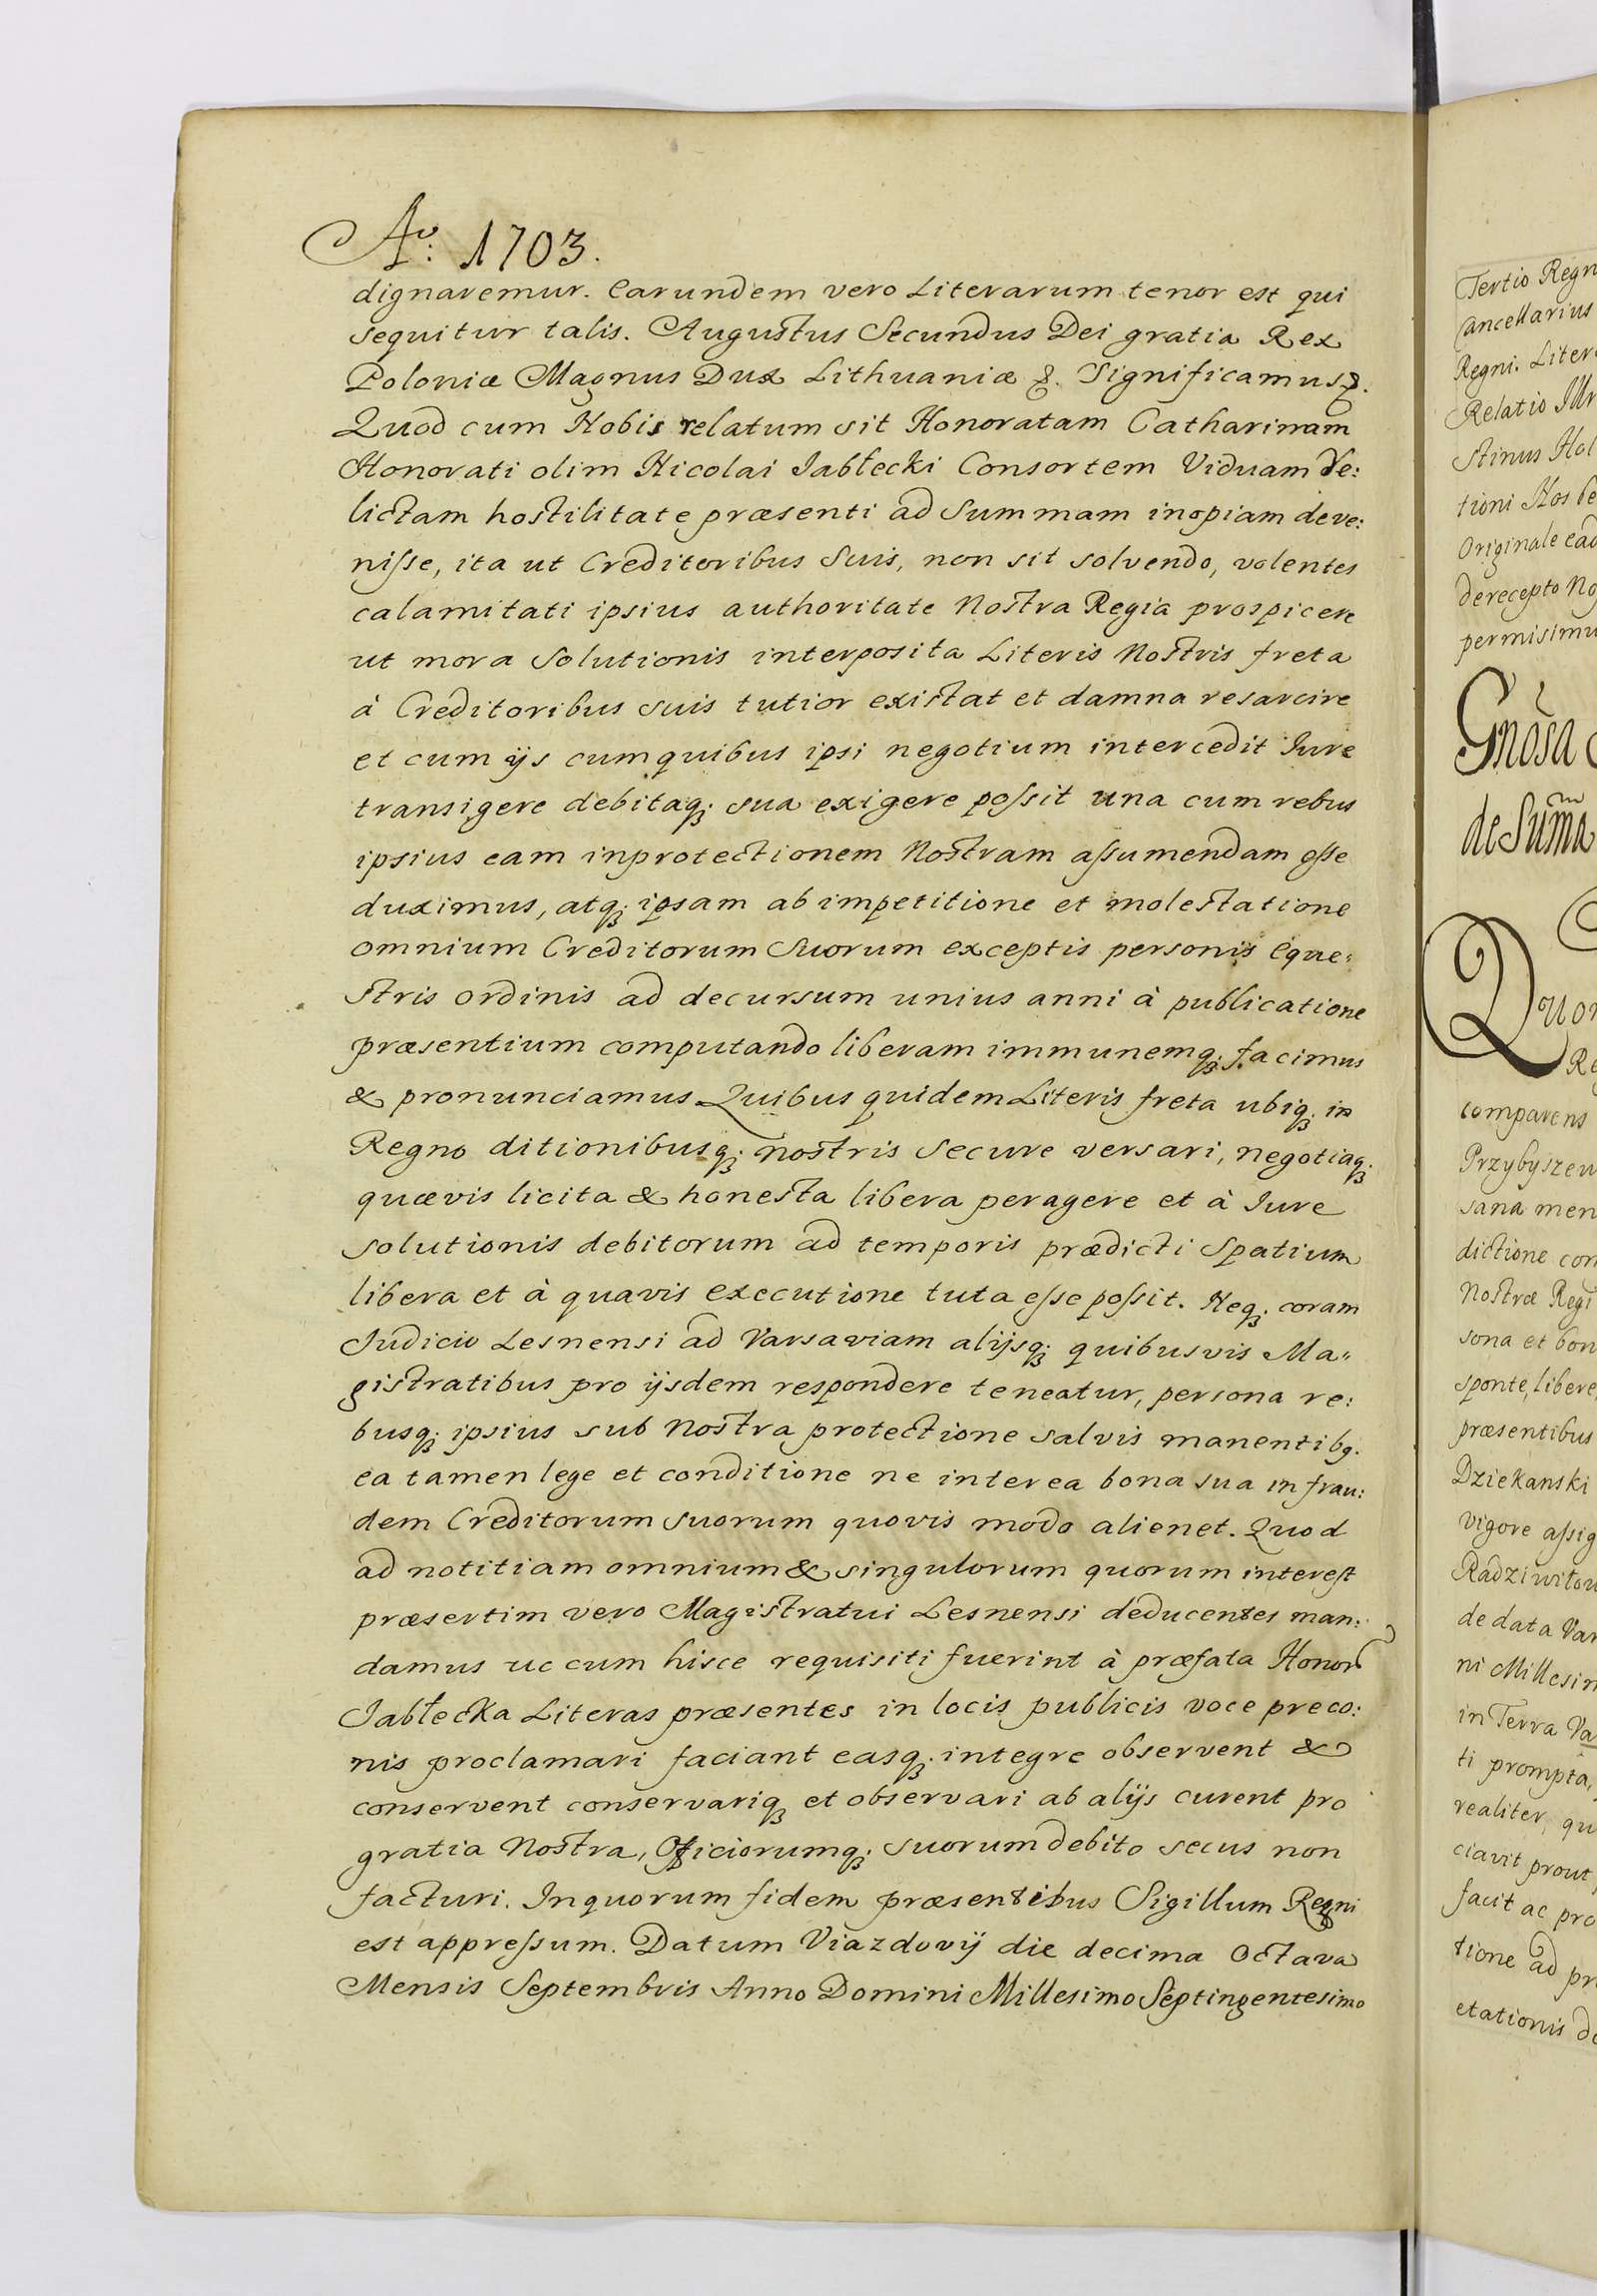 Aº: 1703.
dignaremur. Earundem vero Literarum tenor est qui
sequitur talis. Augustus Secundus Dei gratia Rex
Poloniæ Magnus Dux Lithuaniæ &. Significamus &.
Quod cum Nobis relatum sit Honoratam Catharinam
Honorati olim Nicolai Jabłecki Consortem Viduam de:
lictam hostilitate præsenti ad Summam inopiam deve:
nisse, ita ut Creditoribus Suis, non sit solvendo, volentes
calamitati ipsius authoritate Nostra Regia prospicere
ut mora Solutionis interposita Literis Nostris freta
à Creditoribus suis tutior existat et damna resarcire
et cum ijs cum quibus ipsi negotium intercedit Iure
transigere debitaq; sua exigere possit una cum rebus
ipsius eam in protectionem Nostram assumendam esse
duximus, atq; ipsam ab impetitione et molestatione
omnium Creditorum Suorum exceptis personis Eque:
stris ordinis ad decursum unius anni à publicatione
præsentium computando liberam immunemq; facimus
& pronunciamus Quibus quidem Literis freta ubiq; in
Regno ditionibusq; nostris Secure versari, negotiaq;
quævis licita & honesta libera peragere et à Iure
solutionis debitorum ad temporis prædicti Spatium
libera et à quavis executione tuta esse possit. Neq; coram
Judicio Lesnensi ad Varsaviam alijsq; quibusvis Ma„
gistratibus pro ijsdem respondere teneatur, persona re:
busq; ipsius sub Nostra protectione salvis manentibq.
ea tamen lege et conditione ne interea bona sua in frau:
dem Creditorum suorum quovis modo alienet. Quod
ad notitiam omnium & singulorum quorum interest
præsertim vero Magistratui Lesnensi deducentes man:
damus uc cum hisce requisiti fuerint à præfata Honor
Jabłecka Literas præsentes in locis publicis voce preco:
nis proclamari faciant easq; integre observent &
conservent conservariq; et observari ab alijs curent pro
gratia Nostra, Officiorumq; suorum debito secus non
facturi. In quorum fidem præsentibus Sigillum Regni
est appressum. Datum Viazdovij die decima Octava
Mensis Septembris Anno Domini Millesimo Septingentesimo
Tertio Regn
Cancellarius
Regni. Liter
Relatio Illr
stinus Hol
tioni Nos be
Originale ead
de recepto No
permisimu
Gnosa
de Suma
Quon
Re
comparens
Przybyszew
sana men
dictione con
Nostræ Regi
sona et bon
sponte, libere,
præsentibus
Dziekanski
vigore assig
Radziwiłow
de data Var
ni Millesim
in Terra Va
ti prompta,
realiter, qu
ciavit prout
facit ac pro
tione ad pr
etationis de